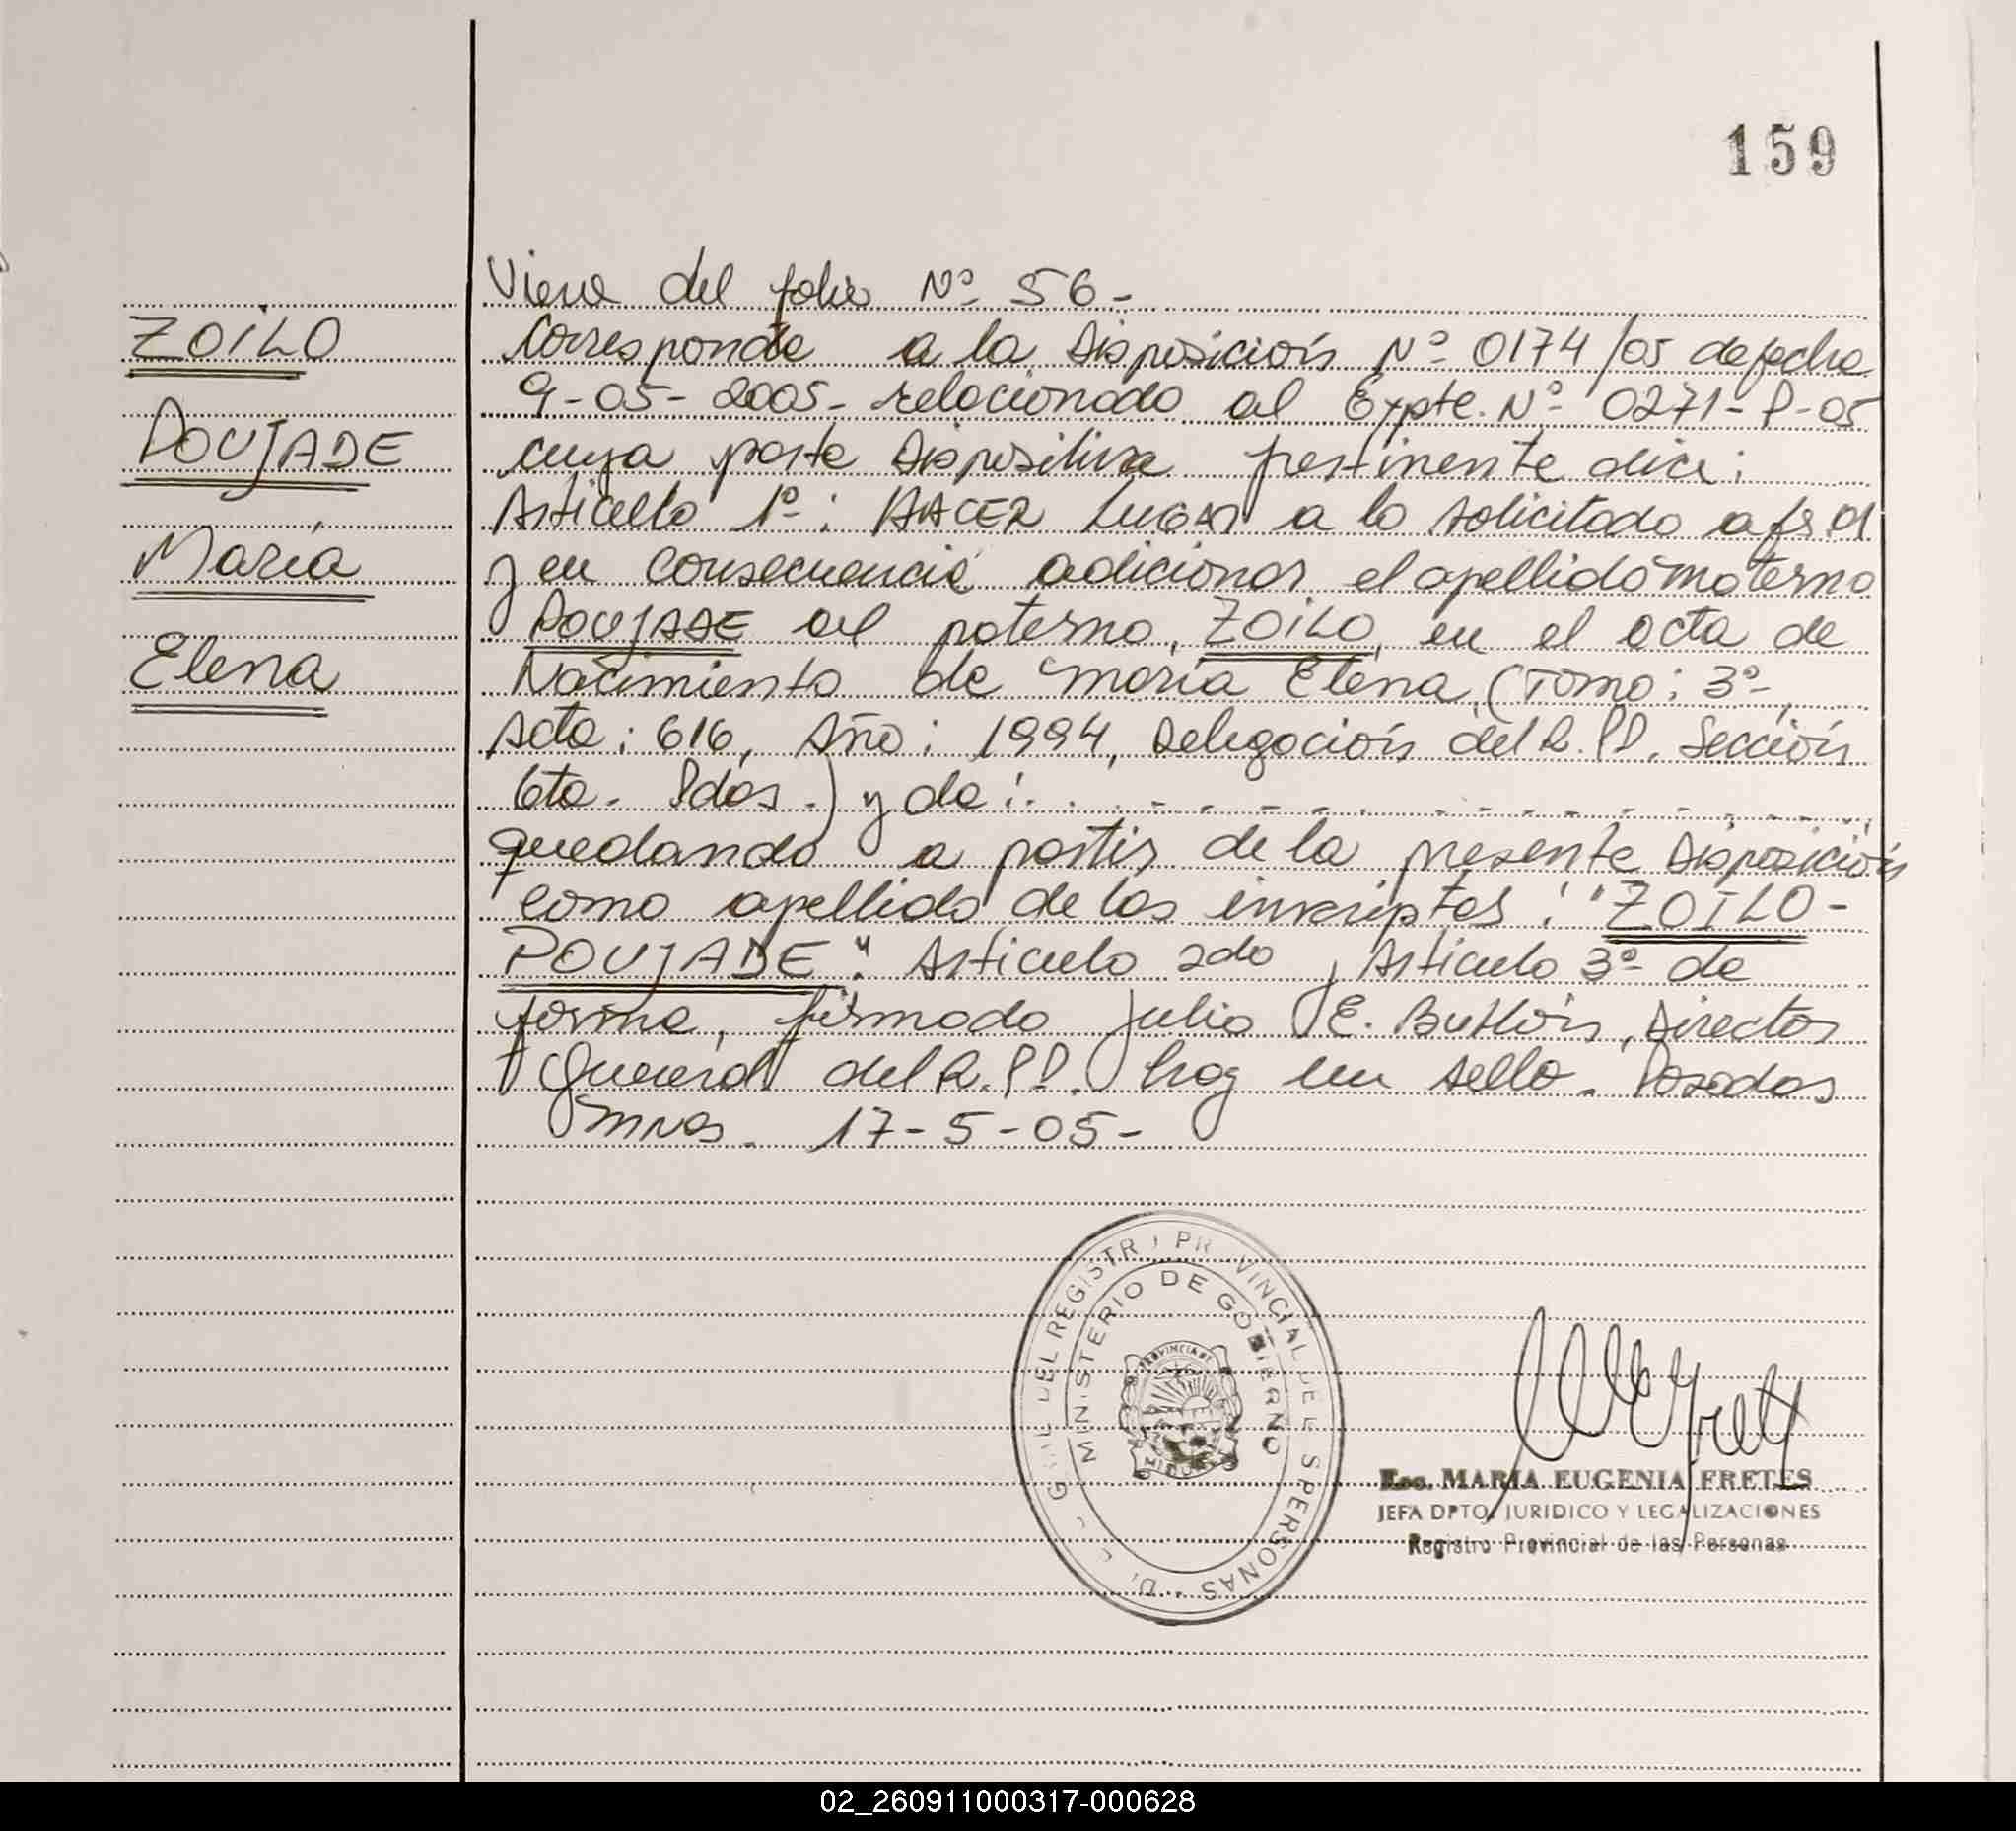 159
ZOILO
POUJADE
María
Elena
Viene del folio Nº 56-
Corresponde a la Disposición Nº 0174/05 de fecha
9-05-2005- relacionado al Expte. Nº 0271-P-05
cuya parte Dispositiva pertinente dice:
Artículo 1º: HACER LUGAR a lo solicitado a fs. 01
y en consecuencia adicionar el apellido materno
POUJADE al paterno, ZOILO, en el acta de
Nacimiento de María Elena, (Tomo: 3º,
Acta: 616, Año: 1994, Delegación del R.PP. Sección
6ta. Pdas.) y de:
quedando a partir de la presente Disposición
como apellido de las inscriptas: "ZOILO-
POUJADE". Artículo 2do, Artículo 3º de
forma, firmado Julio E. Director
General del R.PP. hay un sello. Posadas
Mnes. 17-5-05-
GRAL DEL REGISTRO PROVINCIAL DE LAS PERSONAS
MINISTERIO DE GOBIERNO
PROVINCIA DE
MISIONES
Esc. MARIA EUGENIA FRETES
JEFA DPTO. JURIDICO Y LEGALIZACIONES
Registro Provincial de las Personas
02_260911000317-000628